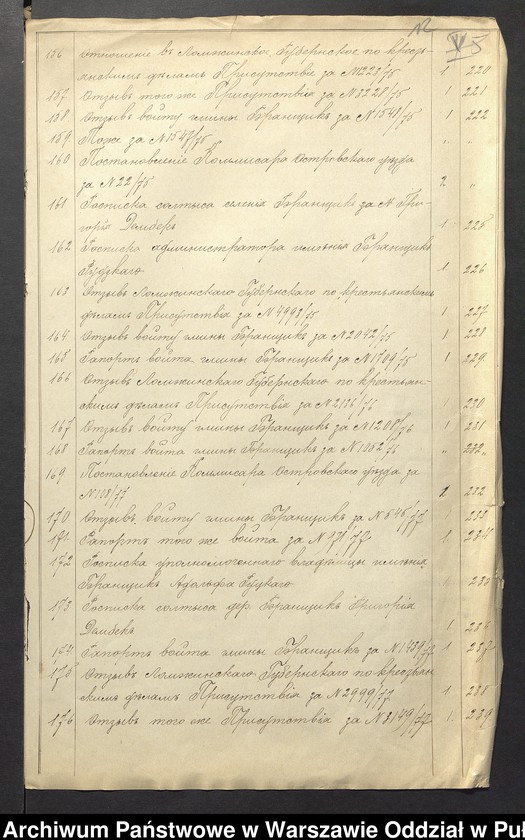 12
V 5
156 Отношеніе въ Ломжинское Губернское по крестъ-
янскимъ дѣламъ Присутствіе за №223/75 1 220
157 Отзывъ того же Присутствія за №3228/75 1 221
158 Отзывъ войту гмины Боранщикъ за №1548/75 1 222
159 Тоже за №1549/75 " "
160 Постановленіе Коммисара Островскаго уѣзда
за №22/75 2 "
161 Росписка солтыса селенія Боранщикъ за № Гри-
горія Дембекъ 1 225
162 Росписка администратора имѣнія Боранщикъ
Рудзкаго 1 226
163 Отзывъ Ломжинскаго Губернскаго по крестьянскимъ
дѣламъ Присутствія за №4993/75 1 227
164 Отзывъ войту гмины Боранщикъ за №2042/75 1 228
165 Рапортъ войта гмины Боранщикъ за №1709/75 1 229
166 Отзывъ Ломжинскаго Губернскаго по крестьян-
скимъ дѣламъ Присутствія за №2126/76 1 230
167 Отзывъ войту гмины Боранщикъ за №1208/76 1 231
168 Рапортъ войта гмины Боранщикъ за №1052/76 " 232
169 Постановленіе Коммисара Островскаго уѣзда за
№108/77 2 232
170 Отзывъ войту гмины Боранщикъ за №545/77 1 233
171 Рапортъ того же войта за №971/77 1 234
172 Росписка уполномоченнаго владѣлицы имѣнія
Боранщикъ Адольфа Руцкаго 235
173 Росписка солтыса дер. Боранщикъ Григорія
Дембекъ 1 236
174 Рапортъ войта гмины Боранщикъ за №1439/77 1 237
175 Отзывъ Ломжинскаго Губернскаго по крестьян
скимъ дѣламъ Присутствія за №2999/77 1 238
176 Отзывъ того же Присутствія за №3149/77 1 239
Archiwum Państwowe w Warszawie Oddział w Puł